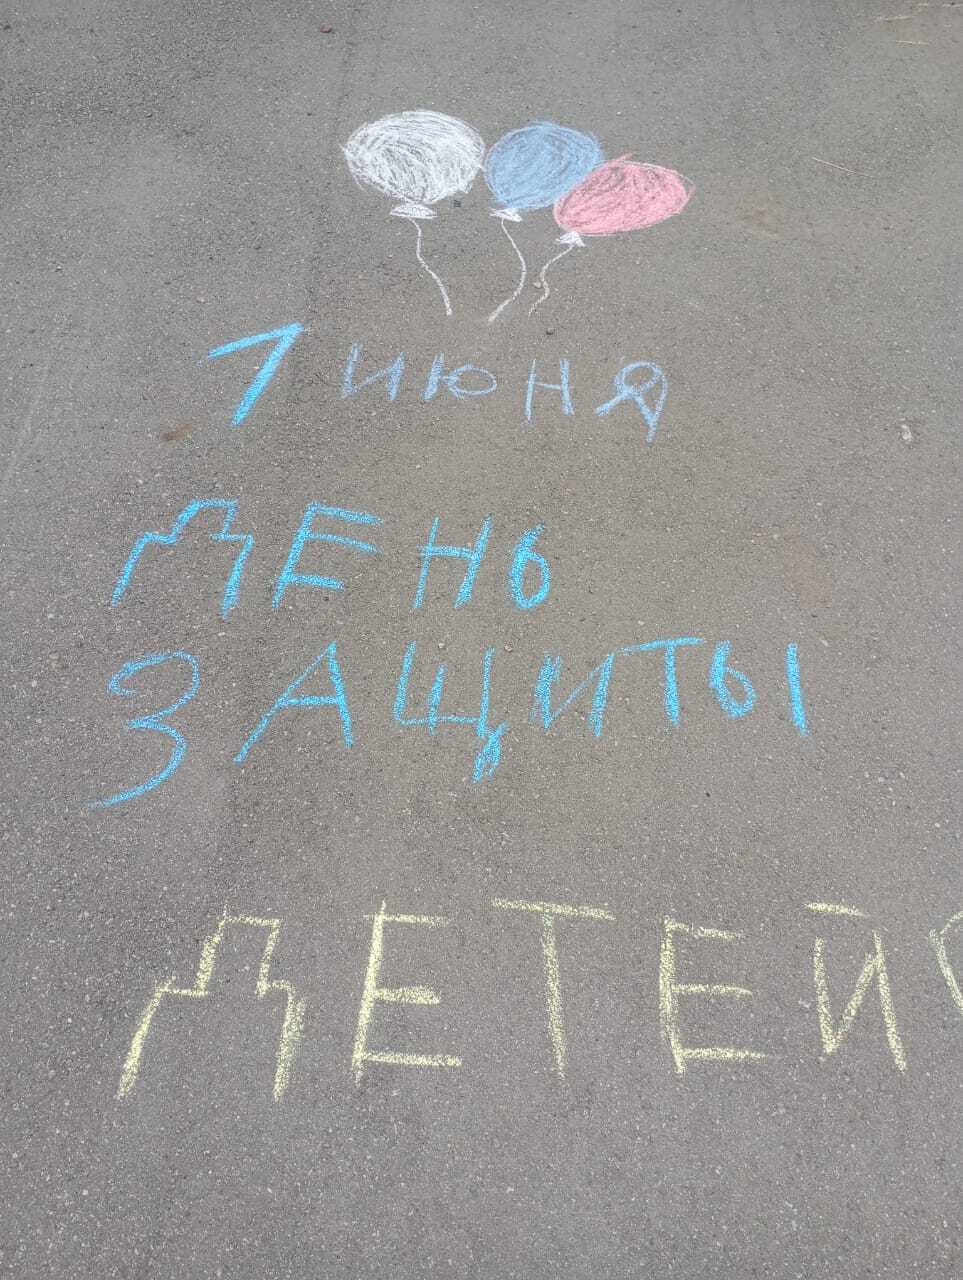 1 июня
ДЕНЬ
ЗАЩИТЫ
ДЕТЕЙ